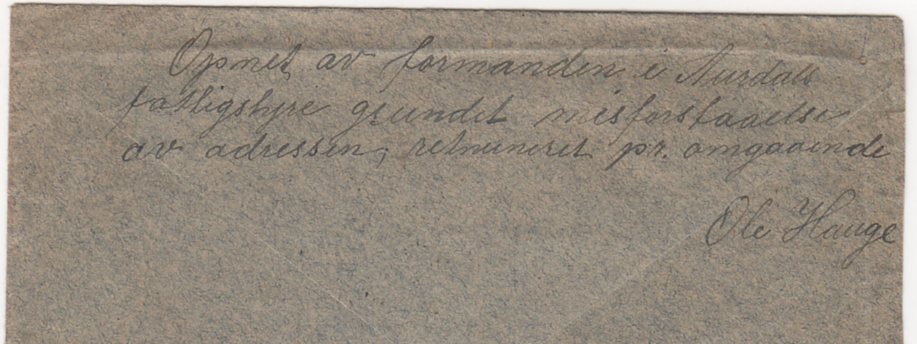 Opsnet av formanden i Aurdals
fattigstyre grundet misforstaaelse
av adressen, retuneret pr. omgaaende
Ole Hauge